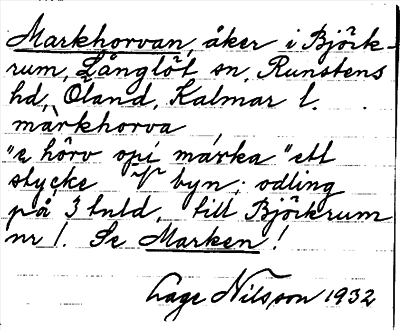 Markhorvan, åker i Björk-
rum, Långlöt sn, Runstens
hd, Öland, Kalmar l.
márkhorva
"e hörv opí márka" ett
stycke i/ byn; odling
på 3 tnld, till Björkrum
nr 1. Se Marken!
Lage Nilsson 1932